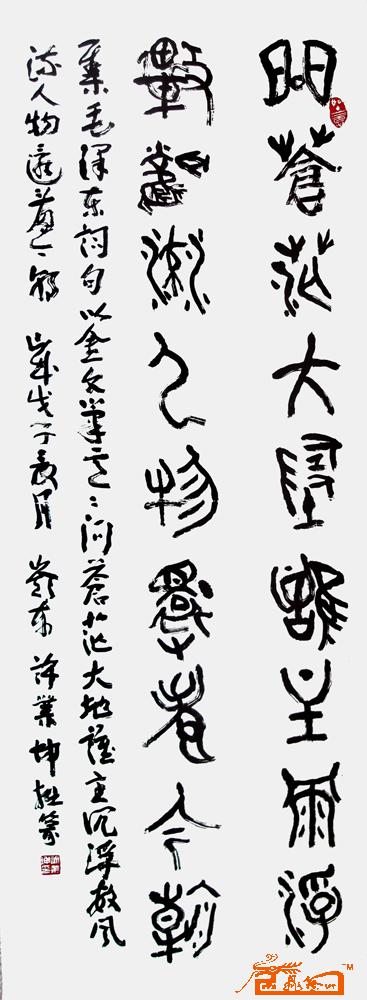 問蒼茫大地誰主沉浮
數風流人物還看今朝
集毛澤东词句以金文筆意 问蒼茫大地誰主沉浮數风
流人物還看今朝 歲戊子 月 嶺东 許業坤拙篆